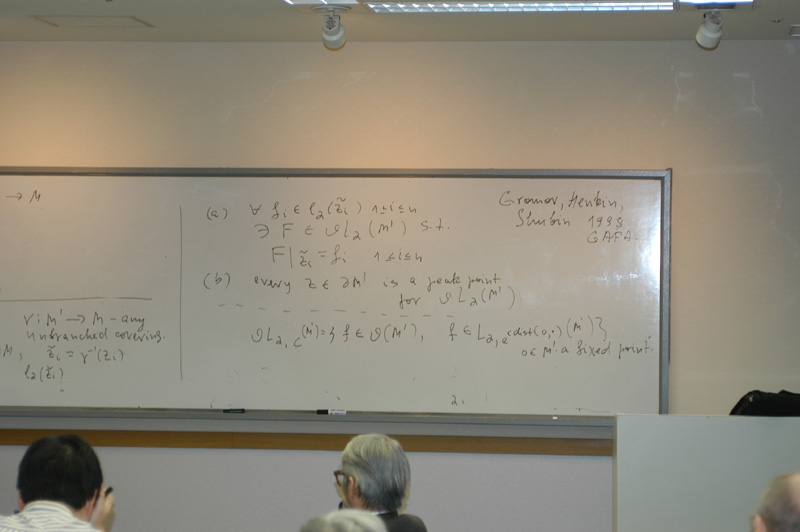 → M
r: M' → M - any
unbranched covering.
M, z̃ᵢ = r⁻¹(zᵢ)
l₂(z̃ᵢ)
(a) ∀ fᵢ ∈ l₂(z̃ᵢ) 1≤i≤n
∃ F ∈ 𝒪L₂(M') s.t.
F|z̃ᵢ = fᵢ 1≤i≤n
(b) every z ∈ ∂M' is a peak point
for 𝒪L₂(M')
𝒪L₂,c(M') = { f ∈ 𝒪(M'), f ∈ L₂,e^{cdist(o,·)}(M') }
o ∈ M' a fixed point.
Gromov, Henkin,
Shubin 1998
GAFA.